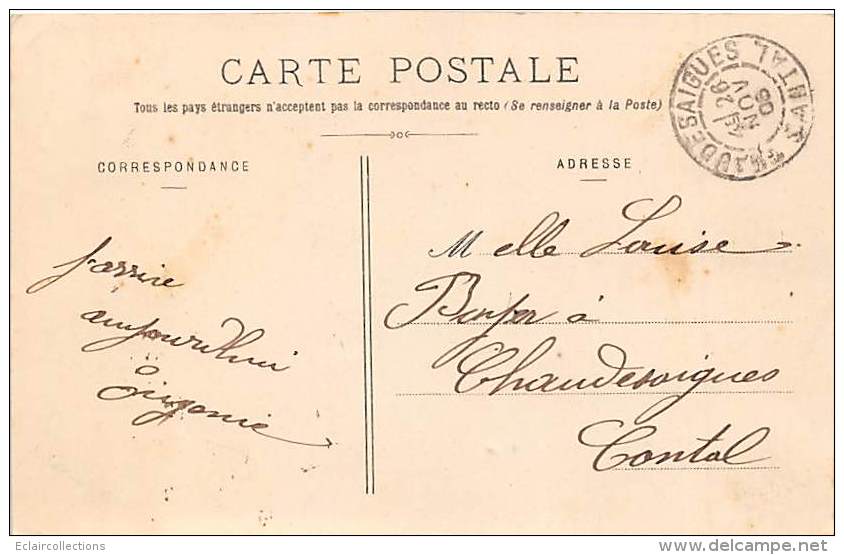 CARTE POSTALE
Tous les pays étrangers n'acceptent pas la correspondance au recto (Se renseigner à la Poste)
CORRESPONDANCE
ADRESSE
CHAUDESAIGUES CANTAL
26
NOV
06
j'arrive
aujourd'hui
Eugenie
Melle Louise
à
Chaudesaigues
Cantal
Eclaircollections
www.delcampe.net